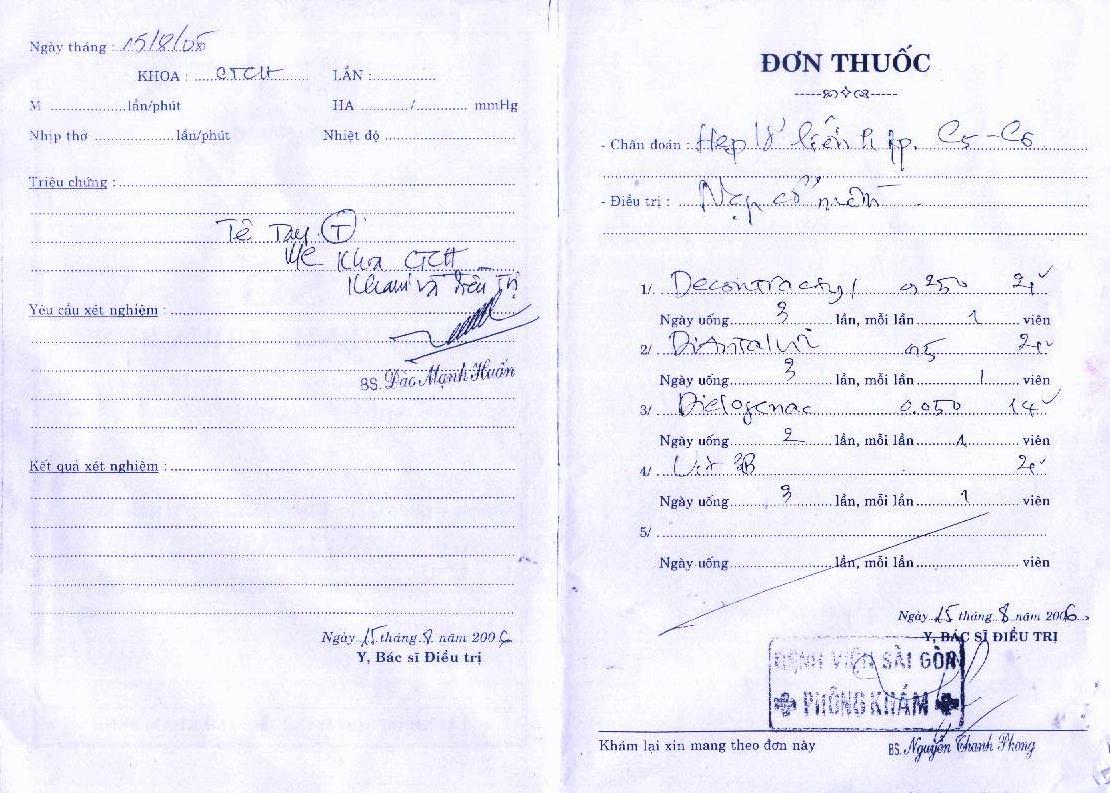 Ngày tháng : 15/8/06
KHOA : CTCH LẦN : ............
M ..............lần/phút HA ........../........... mmHg
Nhịp thở ...............lần/phút Nhiệt độ ......................
Triệu chứng :
Tê Tay (T)
Khoa CTCH
Khám và điều trị
Yêu cầu xét nghiệm :
BS. Đào Mạnh Huấn
Kết quả xét nghiệm :
Ngày 15 tháng 8 năm 2006
Y, Bác sĩ Điều trị
ĐƠN THUỐC
- Chẩn đoán : Hẹp lỗ liên hợp. C5-C6
- Điều trị : Nẹp cổ mềm
1/ Decontractyl 0,250 21v
Ngày uống 3 lần, mỗi lần 1 viên
2/ Diantalvic 21v
Ngày uống 3 lần, mỗi lần 1 viên
3/ Diclofenac 0.050 14v
Ngày uống 2 lần, mỗi lần 1 viên
4/ Vit 3B 21v
Ngày uống 3 lần, mỗi lần 1 viên
5/
Ngày uống.................lần, mỗi lần.................viên
Ngày 15 tháng 8 năm 2006
Y, BÁC SĨ ĐIỀU TRỊ
BỆNH VIỆN SÀI GÒN
PHÒNG KHÁM
Khám lại xin mang theo đơn này
BS. Nguyễn Thanh Phong